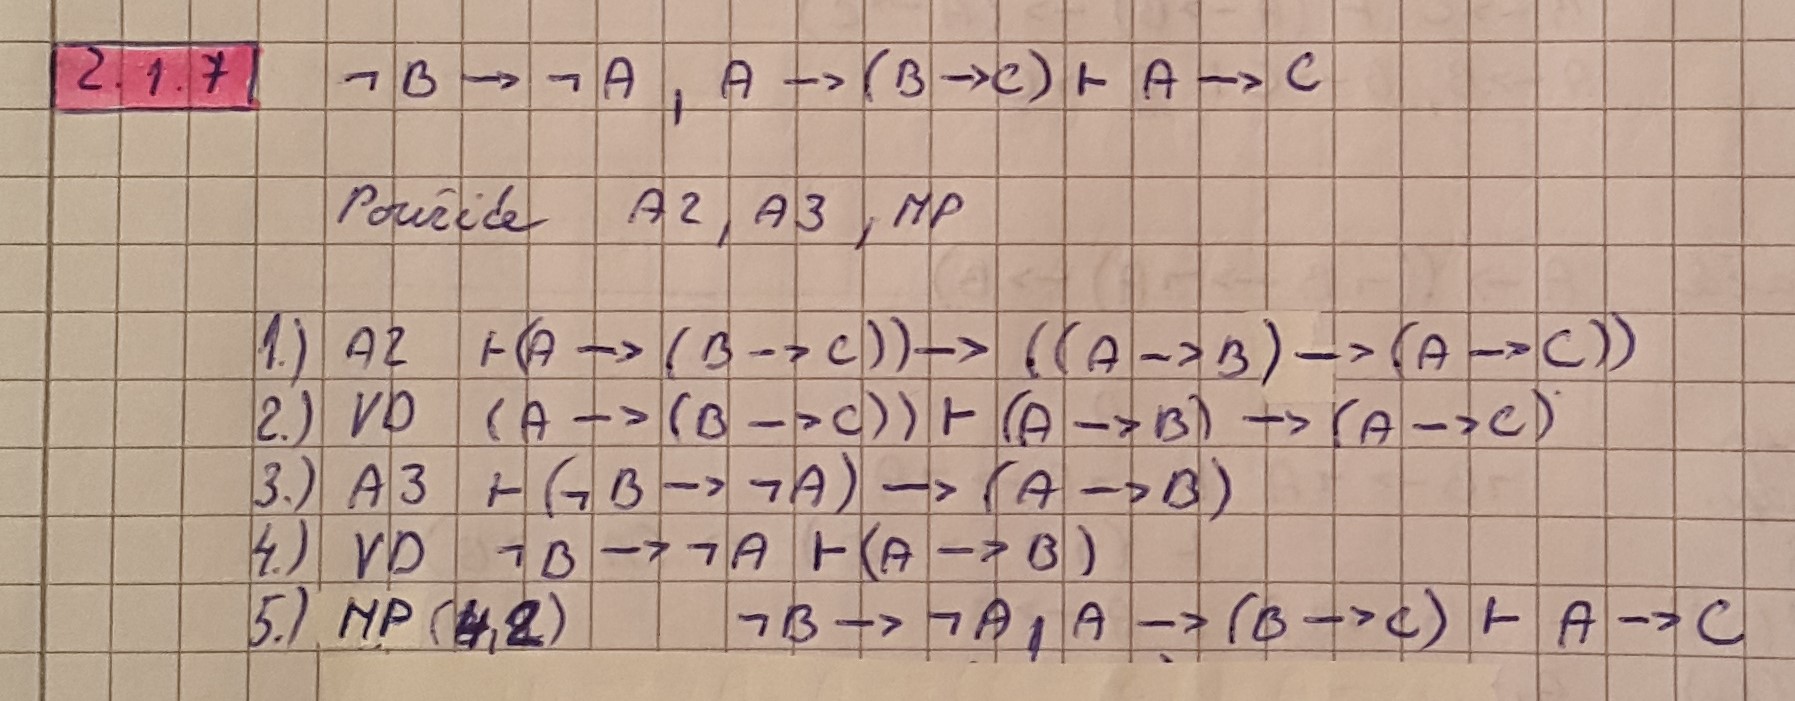 2.1.7 ¬B → ¬A, A → (B → C) ⊢ A → C
Použite A2, A3, MP
1.) A2 ⊢ (A → (B → C)) → ((A → B) → (A → C))
2.) VD (A → (B → C)) ⊢ (A → B) → (A → C)
3.) A3 ⊢ (¬B → ¬A) → (A → B)
4.) VD ¬B → ¬A ⊢ (A → B)
5.) MP (4,2) ¬B → ¬A, A → (B → C) ⊢ A → C